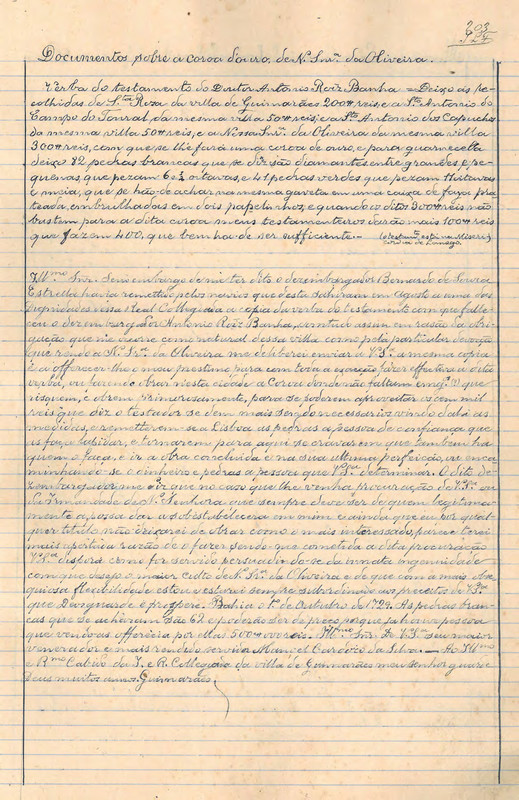 Documentos sobre a coroa d'ouro, de N.ª Snr.ª da Oliveira.
Verba do testamento do Doutor Antonio Roiz Banha = Deixo ás re-
colhidas de S.ta Roza da villa de Guimarães 200# reis, e a S.to Antonio do
Campo do Toural, da mesma villa 50# reis, e a S.to Antonio dos Capuchos
da mesma villa 50# reis, e a Nossa Snr.ª da Oliveira da mesma villa
300# reis, com que se lhe fará uma coroa de ouro, e para guarnecel-a
deixo 82 pedras brancas que se dirão diamantes entre grandes, e pe-
quenas, que pezam 6 oitavas, e 41 pedras verdes que pezam 11 oitavas
e meia, que se hão de achar na mesma gaveta em uma caixa de faya pra-
teada, embrulhadas em dois papelinhos, e quando os ditos 300# reis não
bastem para a dita coroa meus testamenteiros darão mais 100# reis
que fazem 400, que bem ha de ser sufficiente. — (o testam.to está na Miseri-
cordia de Lamego.
Ill.mo Snr. Sem embargo de me ter dito o dezembargador Bernardo de Souza
Estrella havia remettido pelos navios que desta sahiram em Agosto a uma das
Dignidades nessa Real Collegiada a copia da verba do testamento com que falle-
ceu o dezembargador Antonio Roiz Banha, comtudo assim em razão da obri-
gação que me occorre como natural dessa villa como pela particular devoção
que rendo a N.ª Snr.ª da Oliveira me deliberei enviar a V. S.ª a mesma copia
e a offerecer-lhe o meu prestimo para com toda a exacção fazer effectiva a dita
verba, ou fazendo obrar nesta cidade a Coroa donde não faltem que
risquem, e obrem primorosamente, para se poderem aproveitar os cem mil
reis que diz o testador se dem mais sendo necessarios vindo dahi as
medidas, e remetterem-se a Lisboa as pedras a pessoa de confiança que
as faça labidar, e tornarem para aqui se cravarem que tambem ha
quem o faça, e ir a obra concluida e na sua ultima perfeição, ou enca-
minhando-se o dinheiro e pedras a pessoa que V. S.ª determinar. O dito de-
zembargador me diz que no caso que lhe venha procuração de V. S.ª ou
da Irmandade de N.ª Senhora que sempre deve ser de quem legitima-
mente a possa dar a substabelecerá em mim e ainda que eu por qual-
quer titulo não deixarei de obrar como o mais interessado, parece terei
mais apertada razão de o fazer sendo-me comettida a dita procuração.
V. S.ª disporá como for servido persuadindo-se da innata ingenuidade
com que desejo o maior culto de N.ª Sr.ª da Oliveira e de que com a mais obse-
quiosa flexibilidade estou e estarei sempre subordinado aos preceitos de V. S.ª
que Deus guarde e prospere. Bahia o 1.º de Outubro de 1729. As pedras bran-
cas que se acharam são 62 e poderão ser de preço porque já houve pessoa
que vendo-as offerecia por ellas 500# reis. Ill.mo Snr. De V. S.ª seu maior
venerador e mais rendido servidor Manuel Cardozo da Silva. — Ao Ill.mo
e R.mo Cabido da I. e R. Collegiada da villa de Guimarães meu senhor guarde
Deus muitos annos. Guimarães.